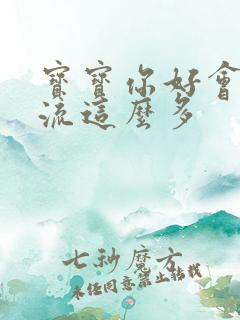 寶寶你好會
流這麼多
七秒魔方
未經同意禁止轉載